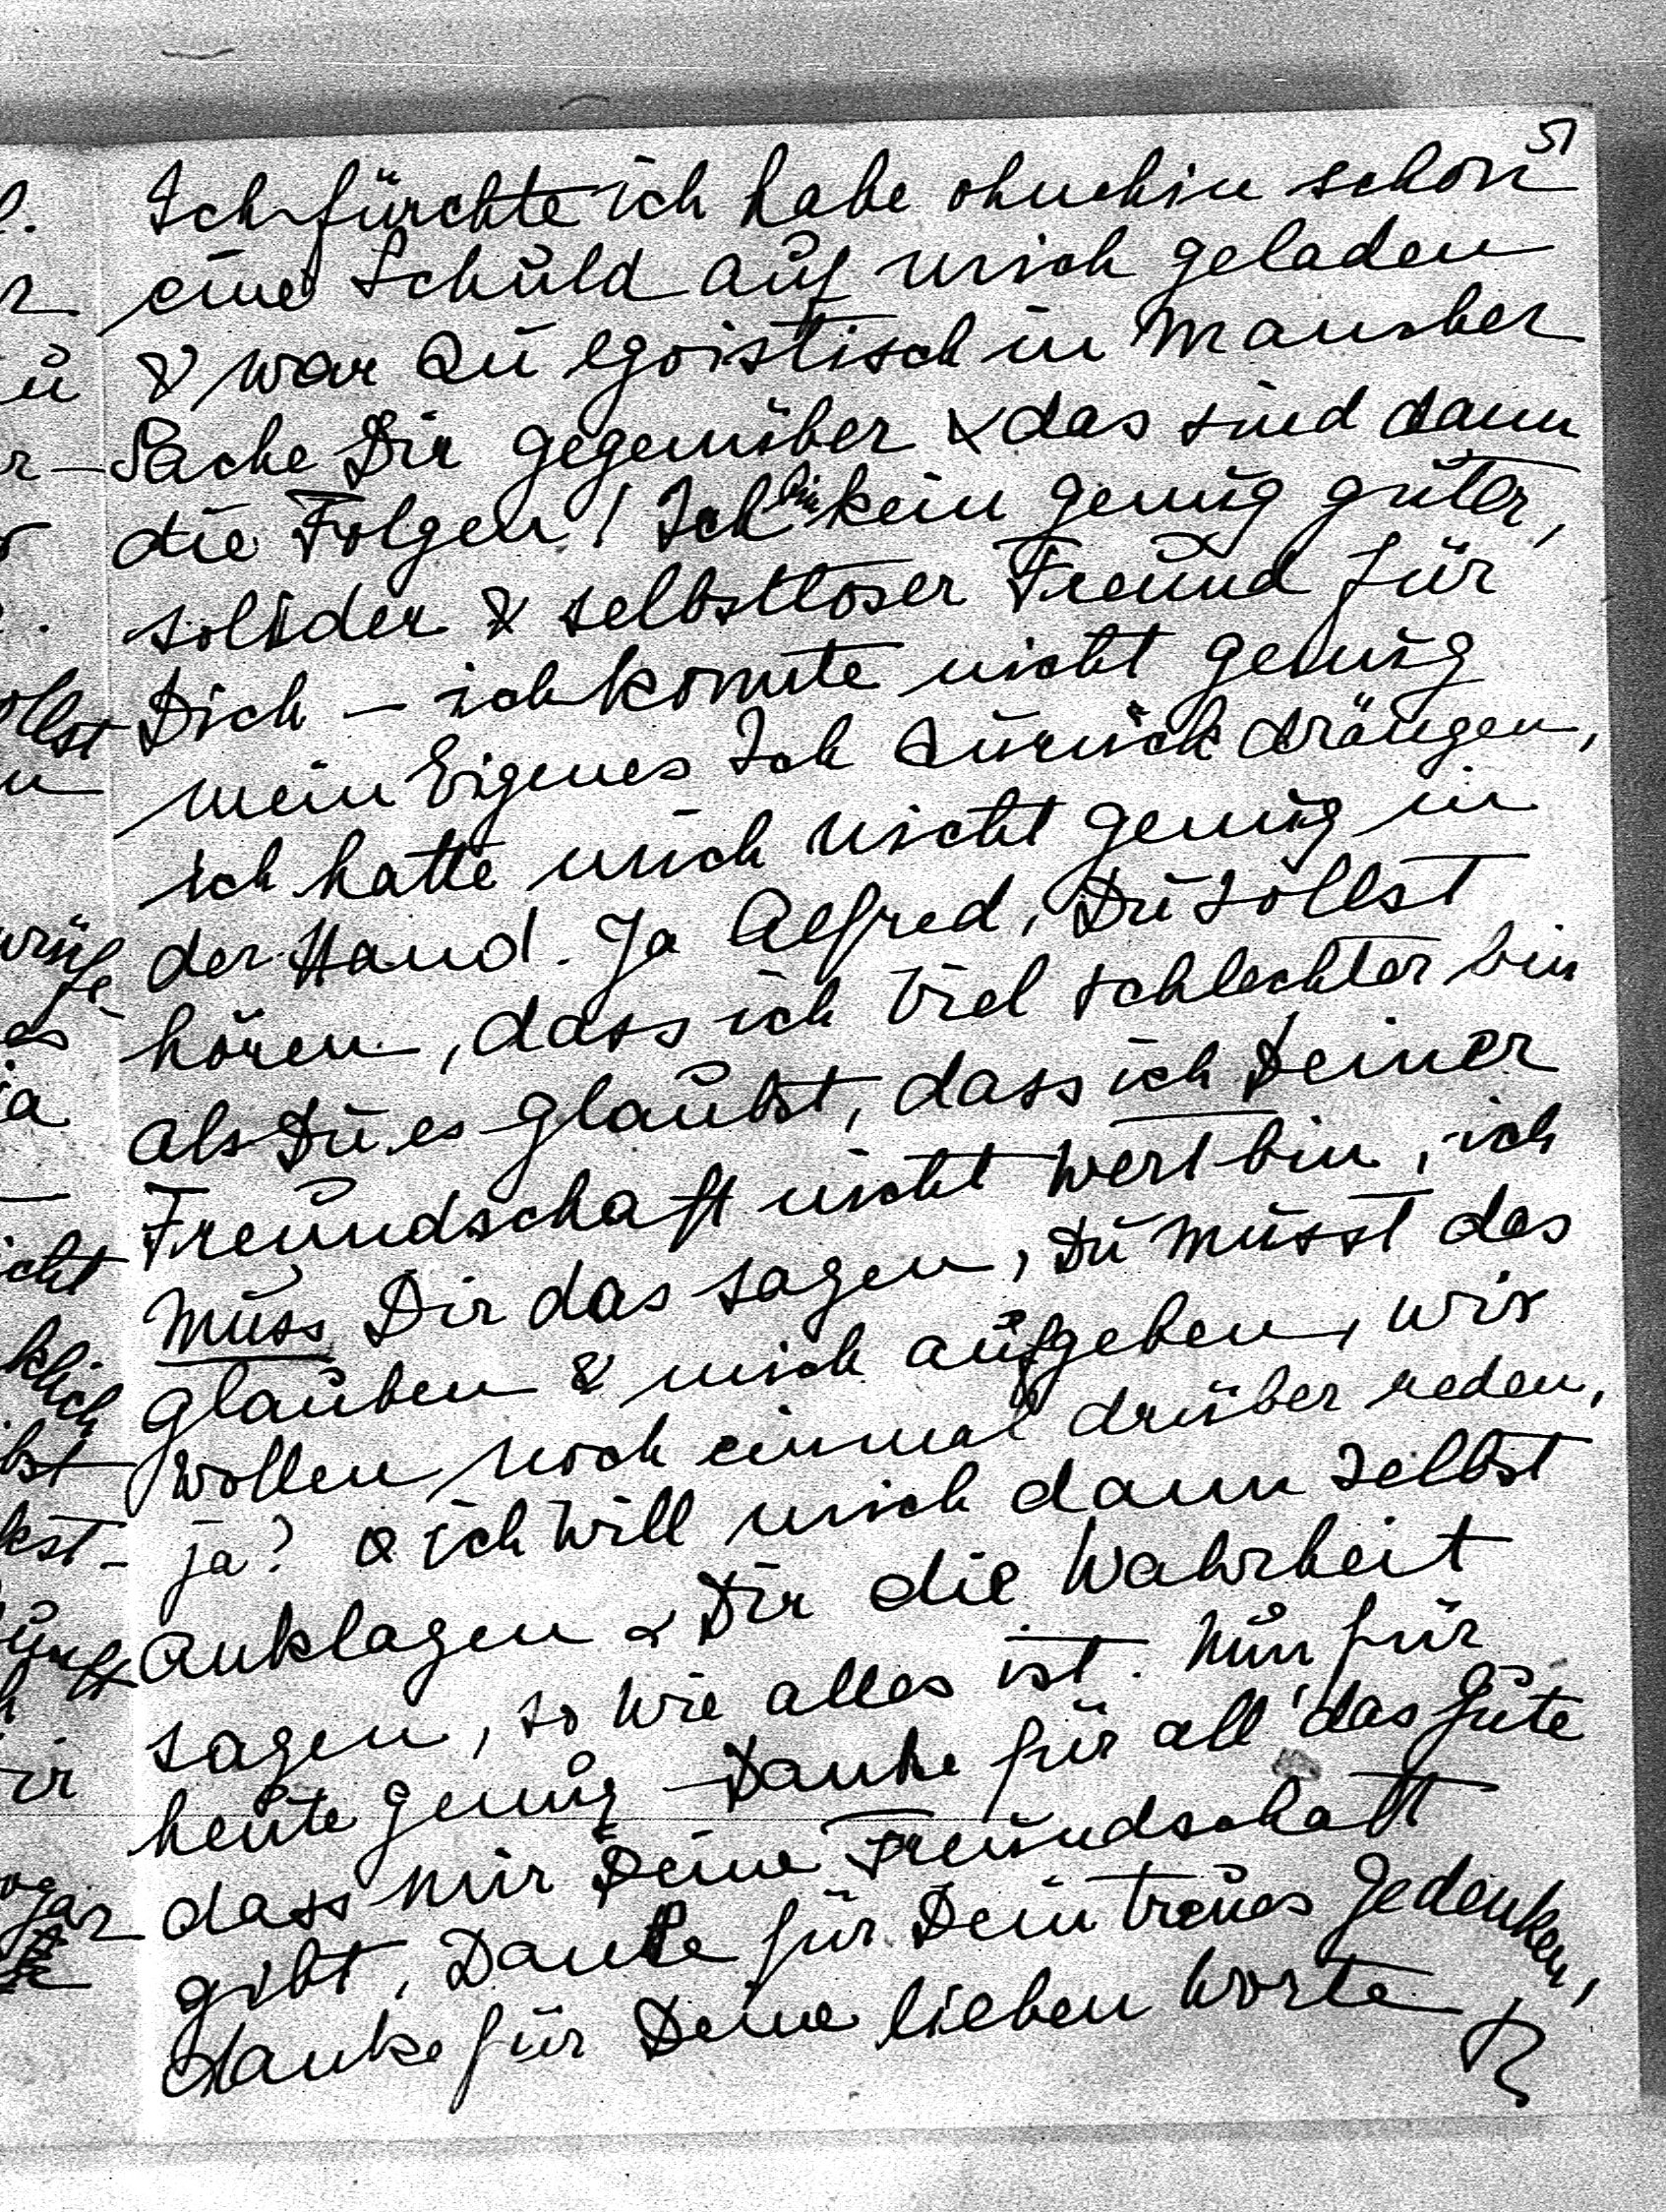 51
Ich fürchte ich habe ohnehin schon
eine Schuld auf mich geladen
& war zu egoistisch in mancher
Sache Dir gegenüber & das sind dann
die Folgen! Ich bin kein genug guter,
solider & selbstloser Freund für
Dich – ich konnte nicht genug
mein Eigenes Ich zurück drängen,
ich hatte mich nicht genug in
der Hand. Ja Alfred, Du sollst
hören, dass ich viel schlechter bin
als Du es glaubst, dass ich Deiner
Freundschaft nicht wert bin, ich
muss Dir das sagen, Du musst das
glauben & mich aufgeben, wir
wollen noch einmal drüber reden,
ja? & ich will mich dann selbst
anklagen & Dir die Wahrheit
sagen, so wie alles ist. Nun für
heute genug – Danke für all' das Gute
dass mir Deine Freundschaft
gibt, Danke für Dein treues Gedenken,
danke für Deine lieben Worte